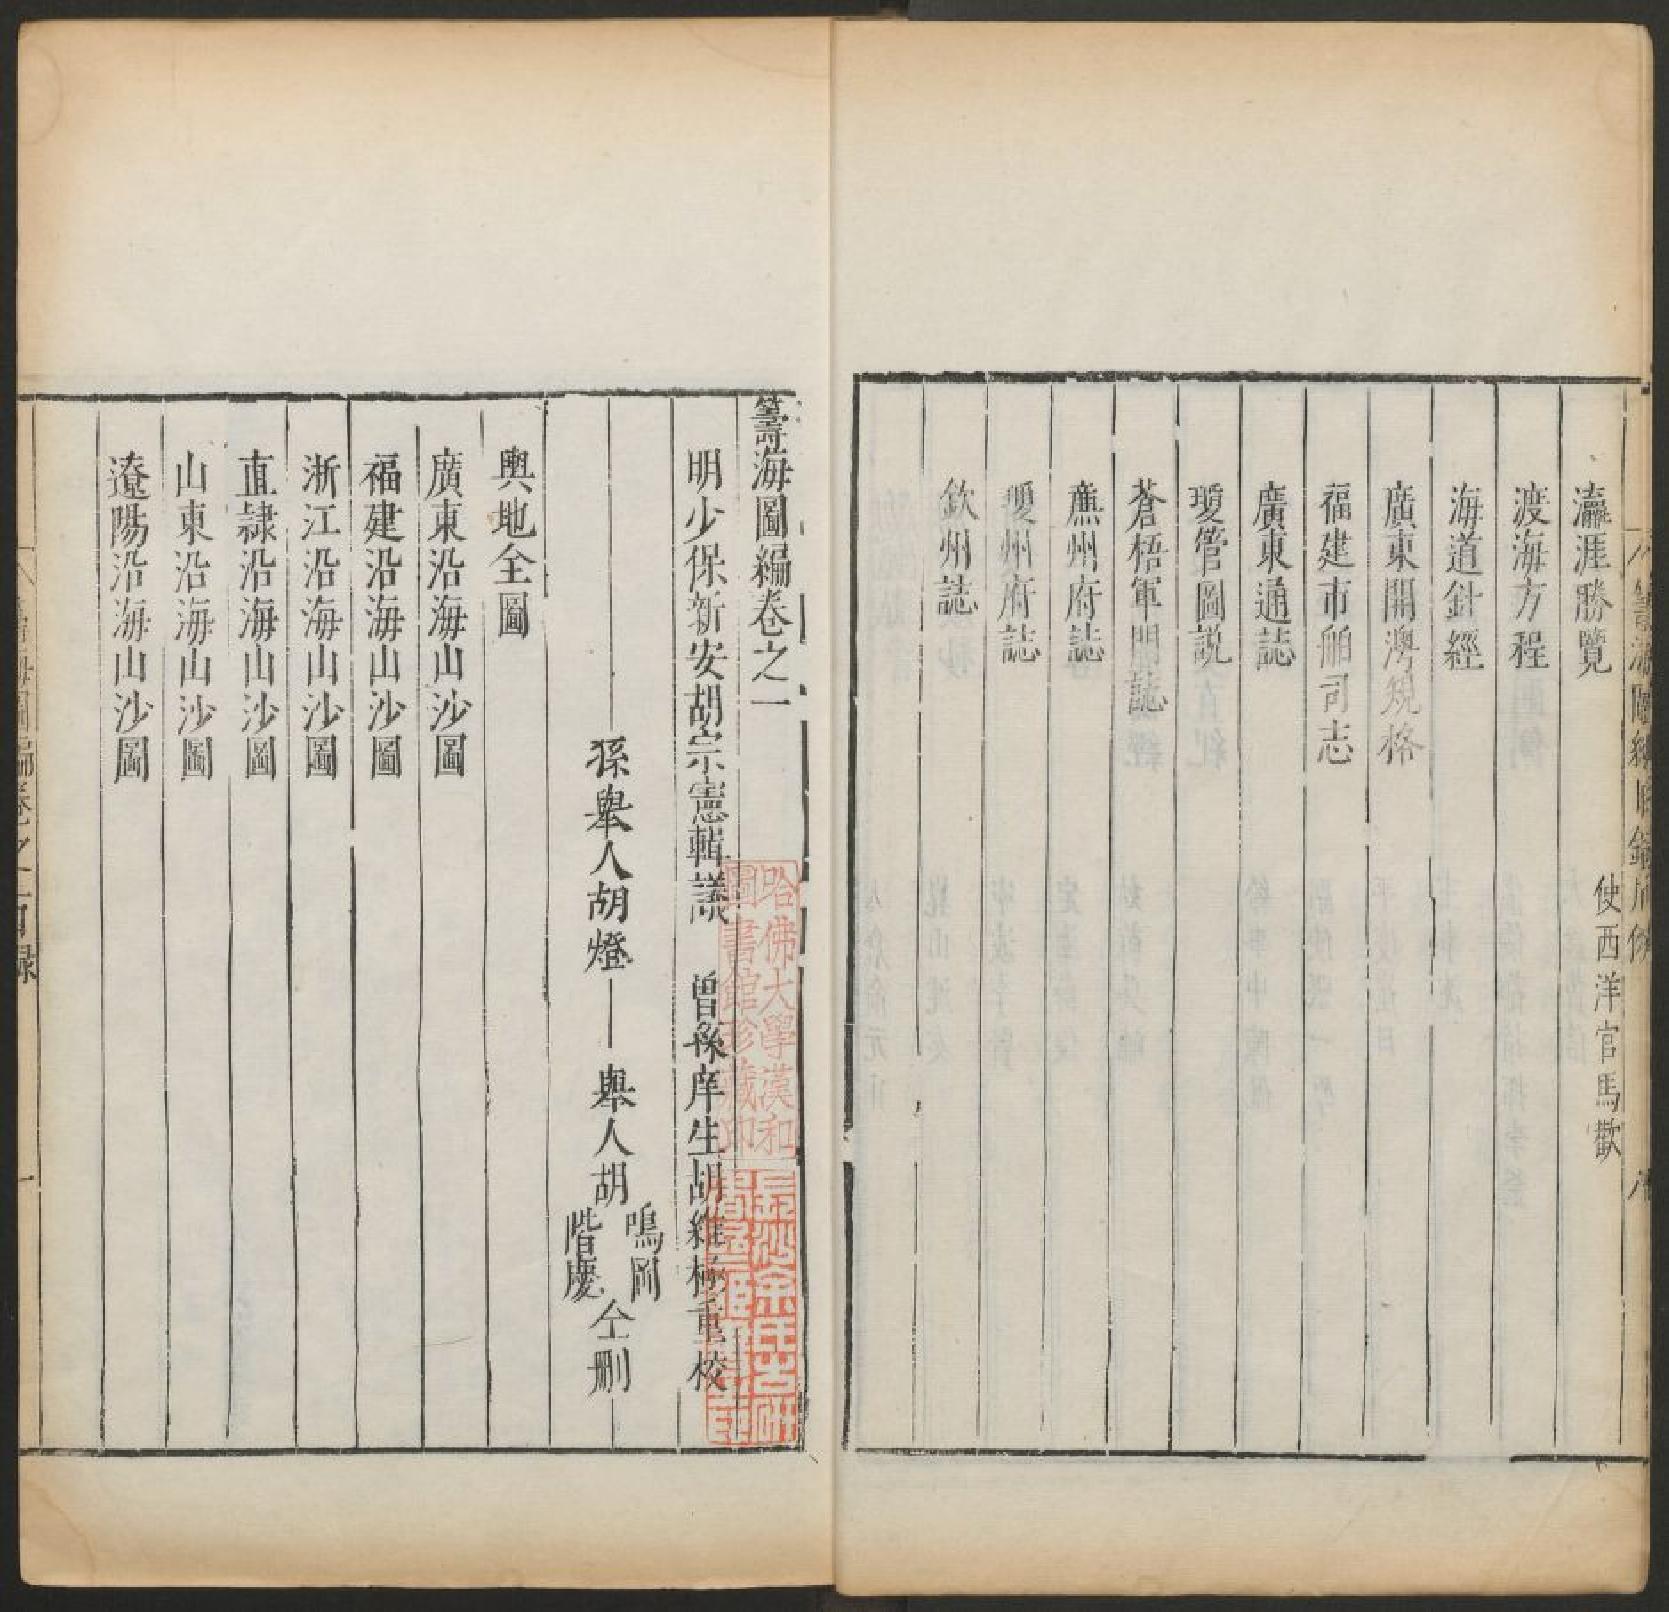 瀛涯勝覽 使西洋官馬歡
渡海方程
海道針經
廣東開澳規格
福建市舶司志
廣東通誌
瓊管圖説
蒼梧軍門誌
廉州府誌
瓊州府誌
欽州誌
籌海圖編卷之一
明少保新安胡宗憲輯議 曾孫庠生胡維極重校
孫舉人胡燈 舉人胡鳴岡階慶仝删
輿地全圖
廣東沿海山沙圖
福建沿海山沙圖
浙江沿海山沙圖
直隷沿海山沙圖
山東沿海山沙圖
遼陽沿海山沙圖
哈佛大學漢和
圖書館珍藏印